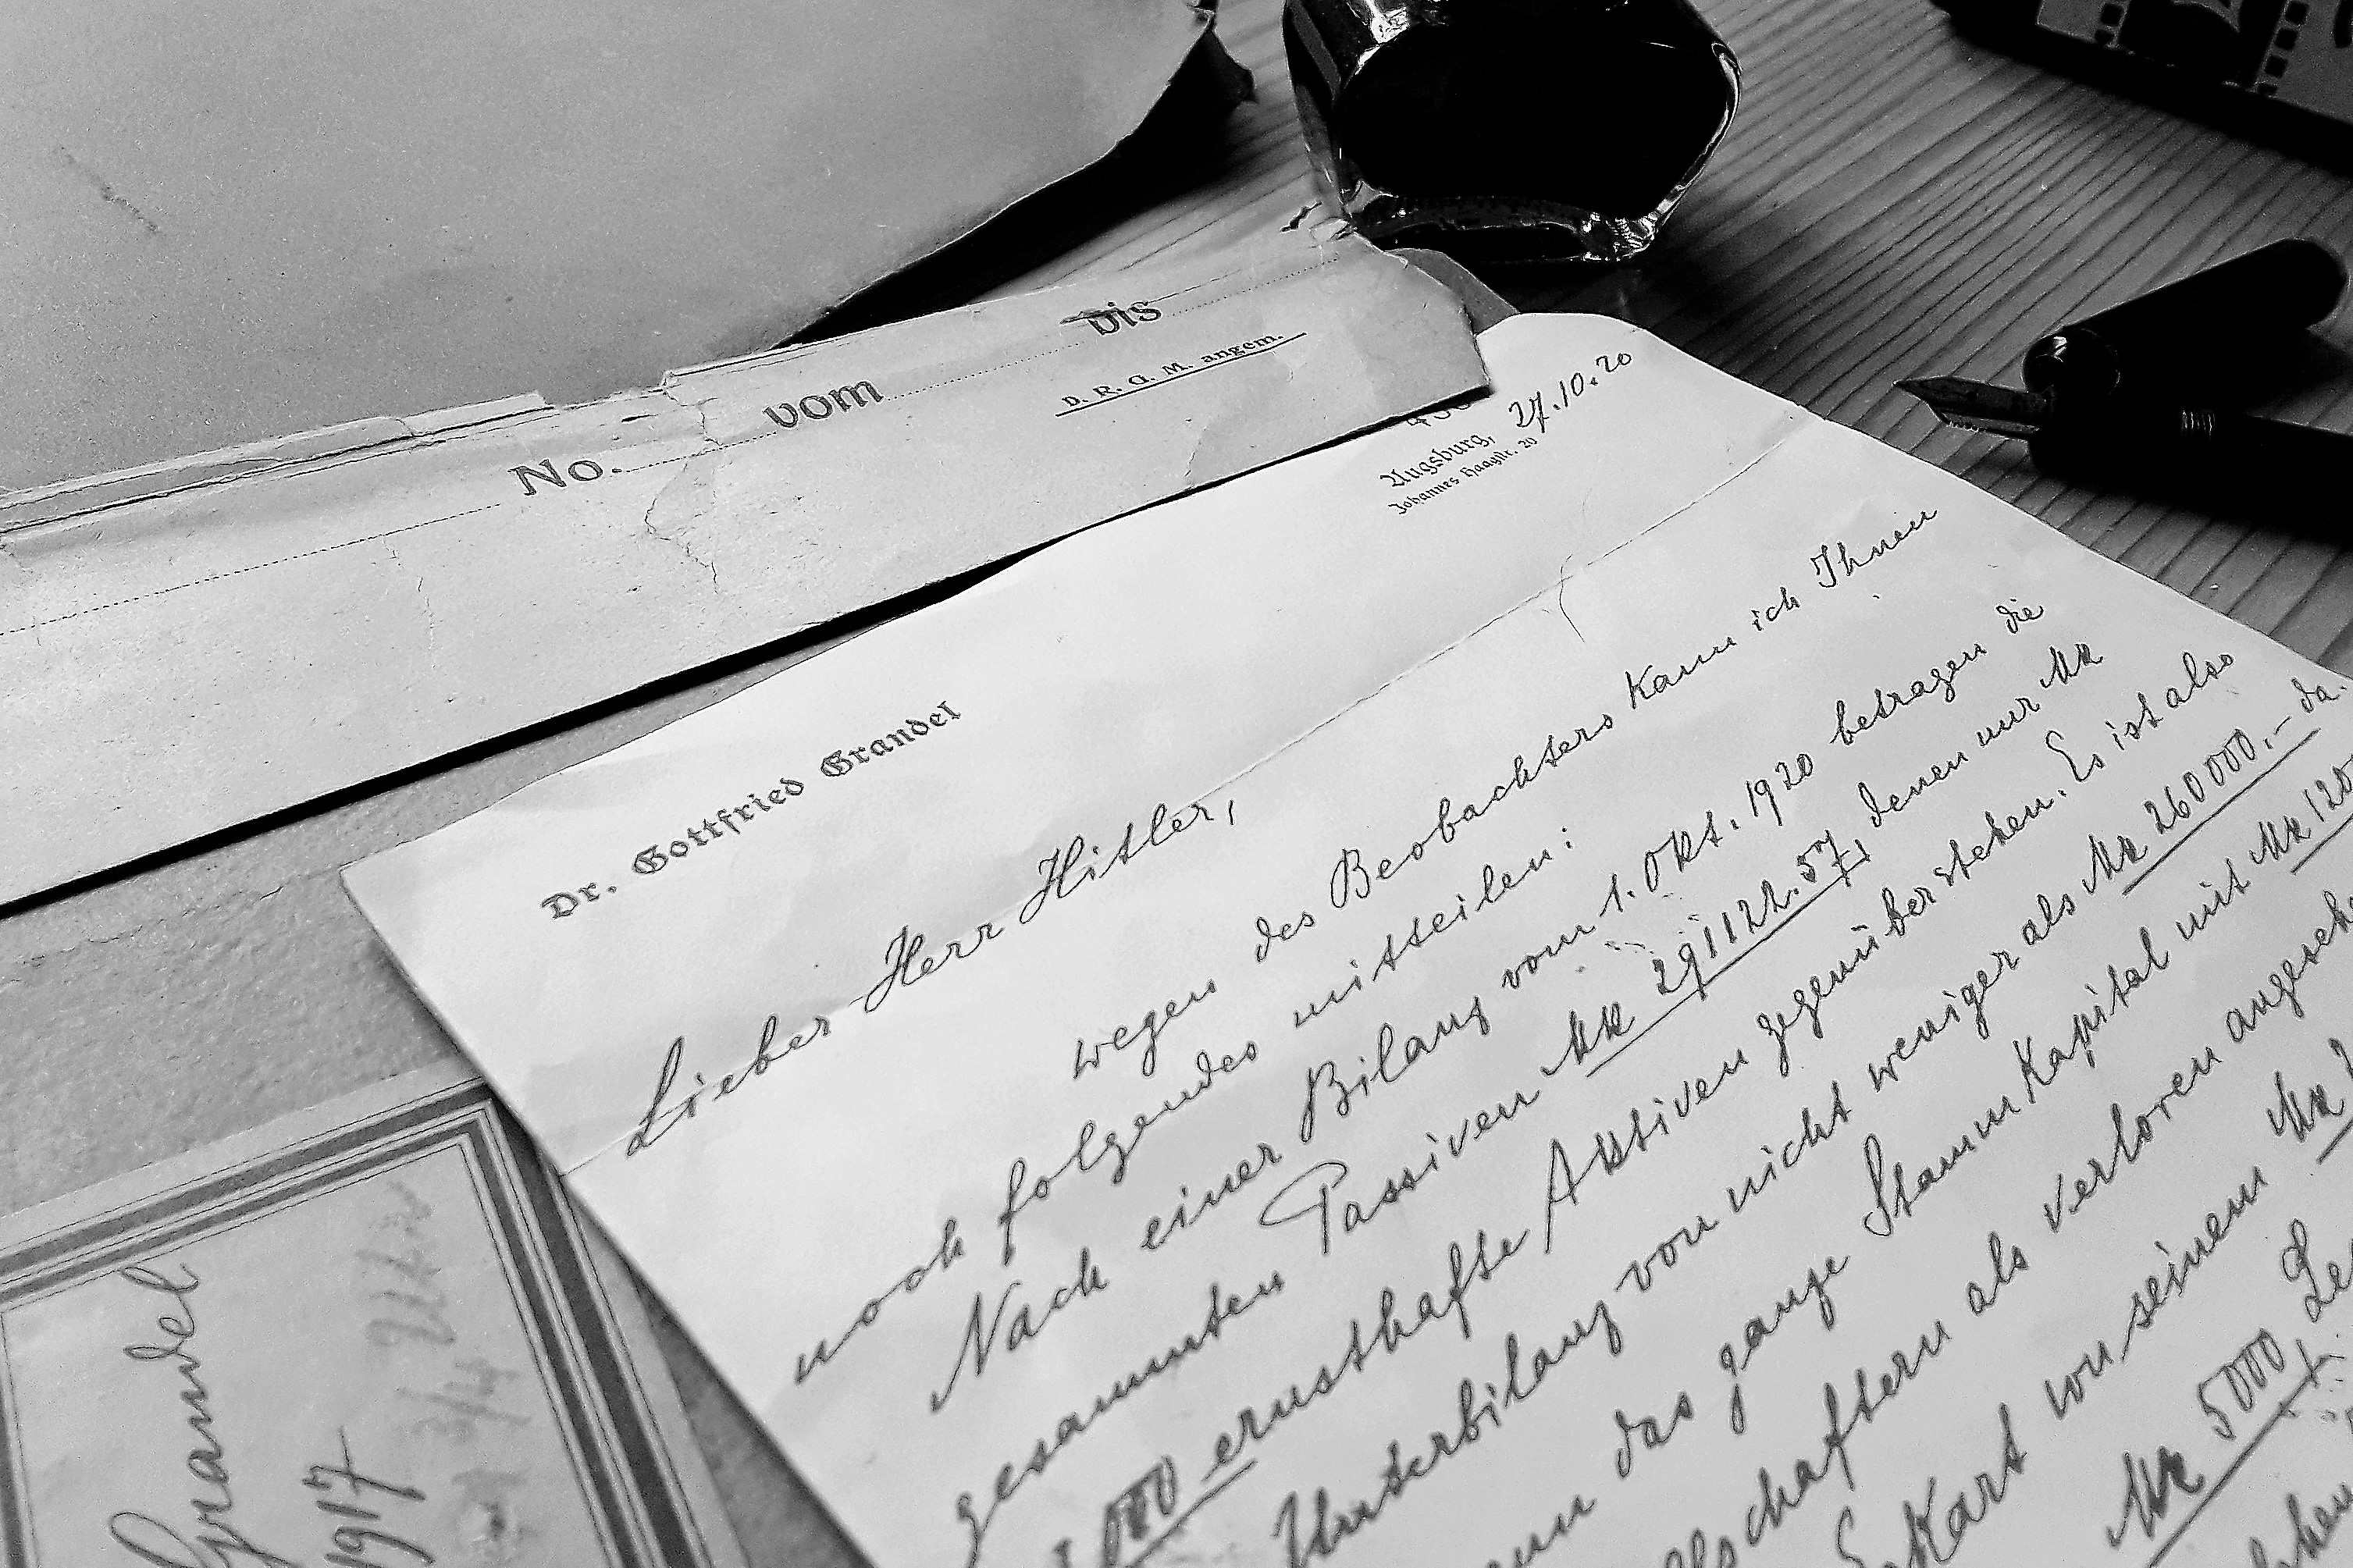 No. vom bis
D. R. G. M. angem.
Augsburg, 27.10.20
Johannes Haagstr. 20
Dr. Gottfried Grandel
Lieber Herr Hitler,
wegen des Beobachters kann ich Ihnen
noch folgendes mitteilen:
Nach einer Bilanz vom 1. Okt. 1920 betragen die
gesammten Passiven Mk 291122.57, denen nur Mk
000 ernsthafte Aktiven gegenüberstehen. Es ist also
Unterbilanz von nicht weniger als Mk 260000,- da.
das ganze Stammkapital mit Mk 120
llschaftern als verloren angeseh
Eckart von seinem Mk
Mk 5000
Grandel
1917